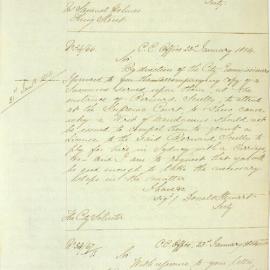 Secty.
Mr Samuel Holmes
King Street
No 54/66 C.C. Office 23d January 1854
Sir
By direction of the City Commissioners
I forward to you the accompanying copy of a
Summons served upon them at the
instance of Bernard Skelley, to attend
at the Supreme Court to Shew cause
why a Writ of Mandamus should not
be issued to compel them to grant a
License to the said Bernard Skelley to
ply for hire in Sydney with a Carriage
&c and I am to request that you will
be good enough to take the necessary
steps in the matter
I have &c
Donald Stewart
Secty
The City Solicitor
C.C. Office, 23d January 1854
Sir
With reference to your letter